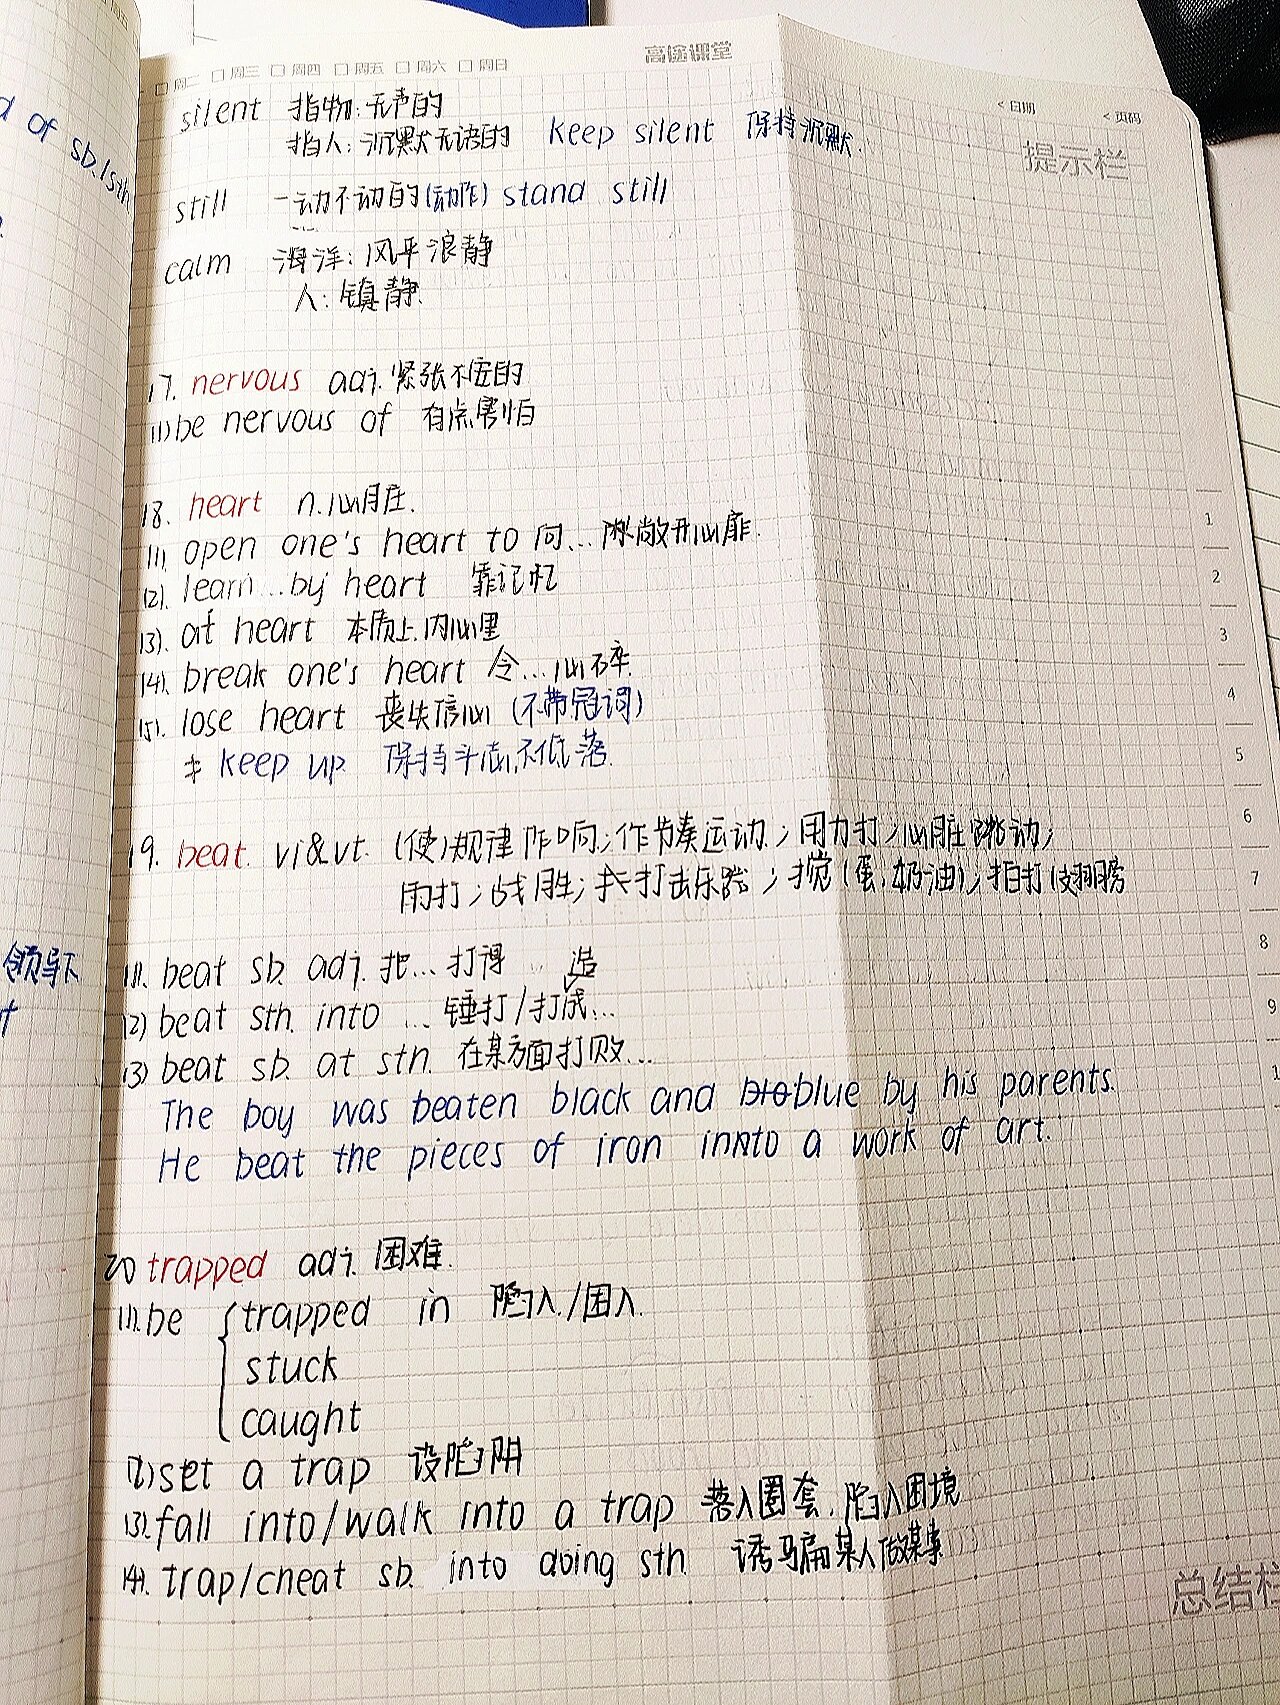 高途课堂
□周二 □周三 □周四 □周五 □周六 □周日
<日期 <页码
提示栏
d of sb./sth
silent 指物:无声的
指人:沉默无语的 keep silent 保持沉默.
still 一动不动的(动作) stand still
calm 海洋:风平浪静
人:镇静.
17. nervous adj. 紧张不安的
(1) be nervous of 有点害怕
18. heart n.心脏.
(1). open one's heart to 向... 敞开心扉.
(2). learn...by heart 靠记忆
(3). at heart 本质上.内心里
(4). break one's heart 令...心碎.
(5). lose heart 丧失信心 (不带冠词)
≠ keep up 保持斗志,不低落.
19. beat. vi&vt. (使)规律作响;作节奏运动;用力打;心脏跳动;
雨打;战胜;长打击乐器;搅(蛋,奶油);拍打(翅膀
领导下
(1). beat sb. adj. 把...打得 造
(2) beat sth. into ... 锤打/打成...
(3) beat sb. at sth. 在某方面打败...
The boy was beaten black and blo blue by his parents.
He beat the pieces of iron into a work of art.
20 trapped adj. 困难.
(1).be { trapped in 陷入/困入.
stuck
caught
(2) set a trap 设陷阱
(3).fall into/walk into a trap 落入圈套.陷入困境
(4). trap/cheat sb. into doing sth. 诱骗某人做某事
1
2
3
4
5
6
7
8
9
总结栏